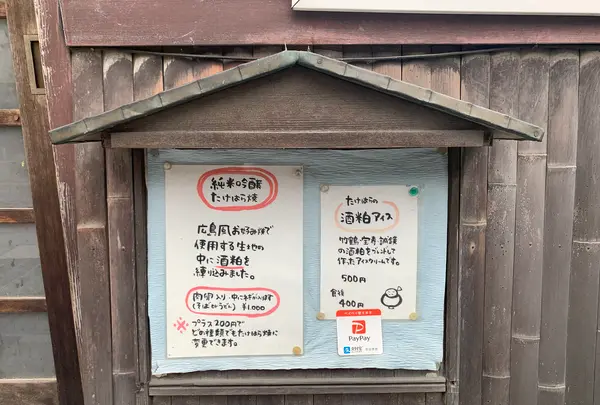 純米吟醸
たけはら焼
広島風お好み焼で
使用する生地の
中に酒粕を
練り込みました。
肉卵入り・中に
(そばorうどん) ¥1,000
※プラス200円で
どの種類でもたけはら焼に
変更できます。
たけはらの
酒粕アイス
竹鶴・宝寿・誠鏡
の酒粕をブレンドして
作ったアイスクリームです。
500円
食後
400円
PayPay